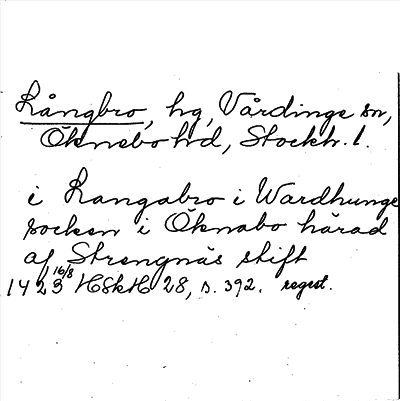 Långbro, hg, Vårdinge sn,
Öknebo hd, Stockh. l.
i Langabro i Wardhunge
socken i Öknabo härad
af Strengnäs stift
1423 16/8 HSkH 28, s. 392. regest.